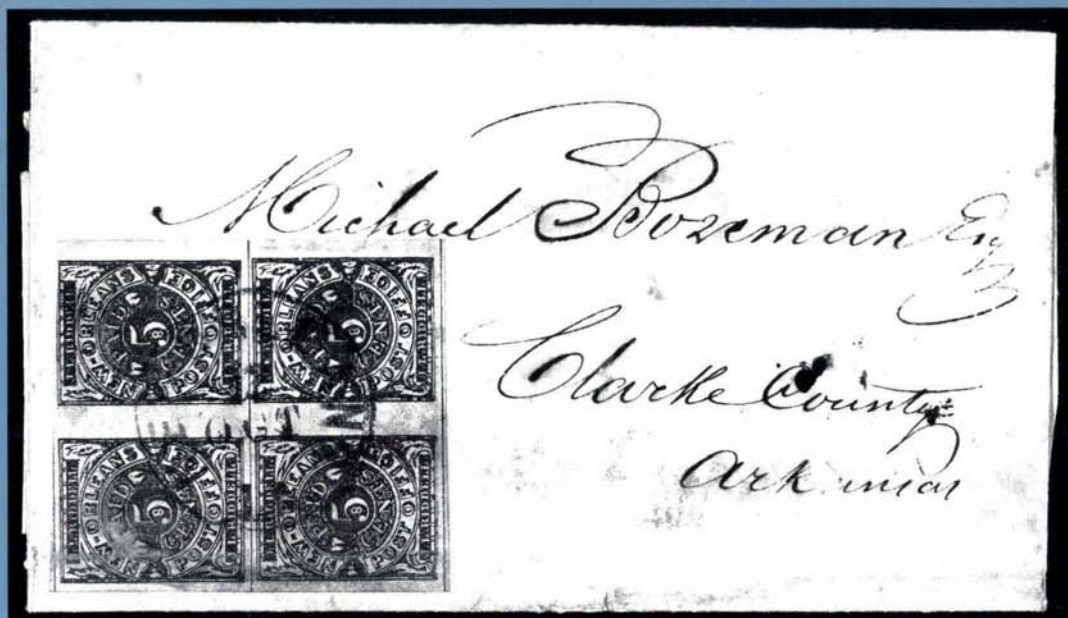 Michael Bozeman Esq
Clarke County
Arkansas
NEW-ORLEANS POST OFFICE
PAID 5 CENTS
NEW-ORLEANS POST OFFICE
PAID 5 CENTS
NEW-ORLEANS POST OFFICE
PAID 5 CENTS
NEW-ORLEANS POST OFFICE
PAID 5 CENTS